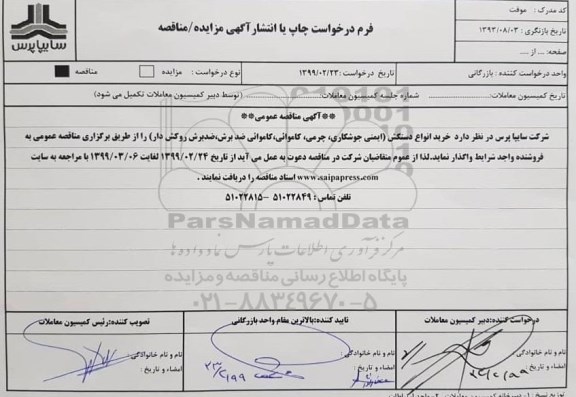 کد مدرک : موقت
تاریخ بازنگری : ۱۳۹۳/۰۸/۰۳
صفحه: ... از ...
فرم درخواست چاپ یا انتشار آگهی مزایده/مناقصه
سایپا پرس
واحد درخواست کننده : بازرگانی
تاریخ درخواست :۱۳۹۹/۰۲/۲۳
نوع درخواست : مزایده مناقصه
تاریخ کمیسیون معاملات: شماره جلسه کمیسیون معاملات: (توسط دبیر کمیسیون معاملات تکمیل می شود)
**آگهی مناقصه عمومی**
شرکت سایپا پرس در نظر دارد خرید انواع دستکش (ایمنی جوشکاری، چرمی، کاموائی،کاموائی ضد برش،ضدبرش روکش دار) را از طریق برگزاری مناقصه عمومی به
فروشنده واجد شرایط واگذار نماید.لذا از عموم متقاضیان شرکت در مناقصه دعوت به عمل می آید از تاریخ ۱۳۹۹/۰۲/۲۴ لغایت ۱۳۹۹/۰۳/۰۶ با مراجعه به سایت
www.saipapress.com اسناد مناقصه را دریافت نمایند .
تلفن تماس : ۵۱۰۲۲۸۴۹ -۵۱۰۲۲۸۱۵
ParsNamadData
مرکز فرآوری اطلاعات پارس نماد داده ها
پایگاه اطلاع رسانی مناقصه و مزایده
۰۲۱-۸۸۳۴۹۶۷۰-۵
درخواست کننده:دبیر کمیسیون معاملات
تایید کننده:بالاترین مقام واحد بازرگانی
تصویب کننده:رئیس کمیسیون معاملات
نام و نام خانوادگی :
نام و نام خانوادگی :
نام و نام خانوادگی :
امضاء و تاریخ :
امضاء و تاریخ :
امضاء و تاریخ :